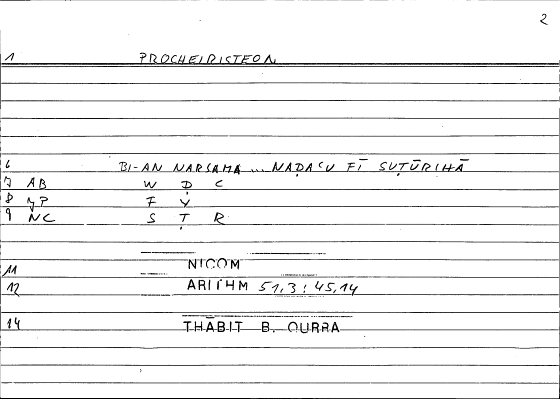 2
1 PROCHEIRISTEON
6 BI-AN NARSAMA ... NAḌAʿU FĪ SUṬŪRIHĀ
7 AB W Ḍ ʿ
8 γP F Y
9 NC S Ṭ R
11 NICOM
12 ARITHM 51,3 : 45,14
14 THĀBIT B. QURRA